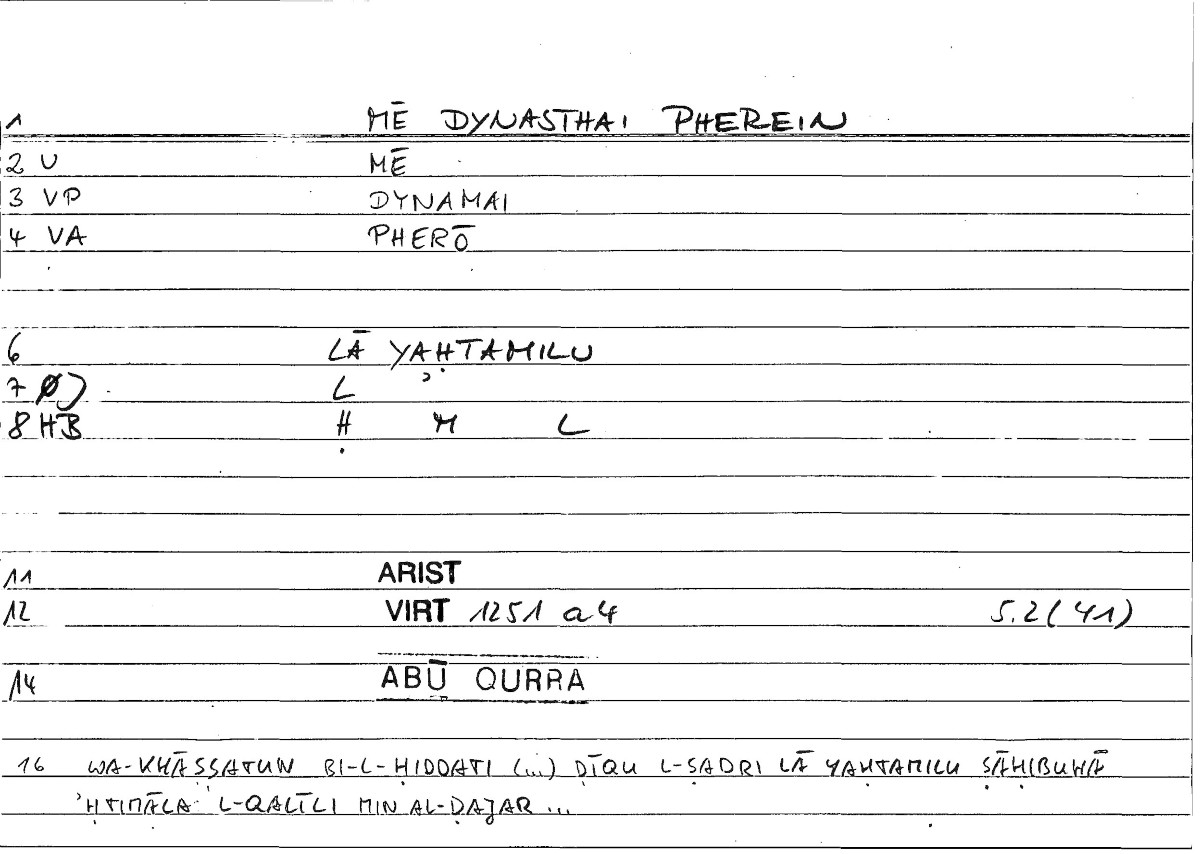 1 MĒ DYNASTHAI PHEREIN
2 U MĒ
3 VP DYNAMAI
4 VA PHERŌ
6 LĀ YAḤTAMILU
7 Ø) L ʾ
8 HB Ḥ M L
11 ARIST
12 VIRT 1251 a4 5.2(41)
14 ABŪ QURRA
16 WA-KHĀṢṢATUN BI-L-ḤIDDATI (...) ḌĪQU L-ṢADRI LĀ YAḤTAMILU ṢĀḤIBUHĀ
'ḤTIMĀLA L-QALĪLI MIN AL-ḌAJAR ...